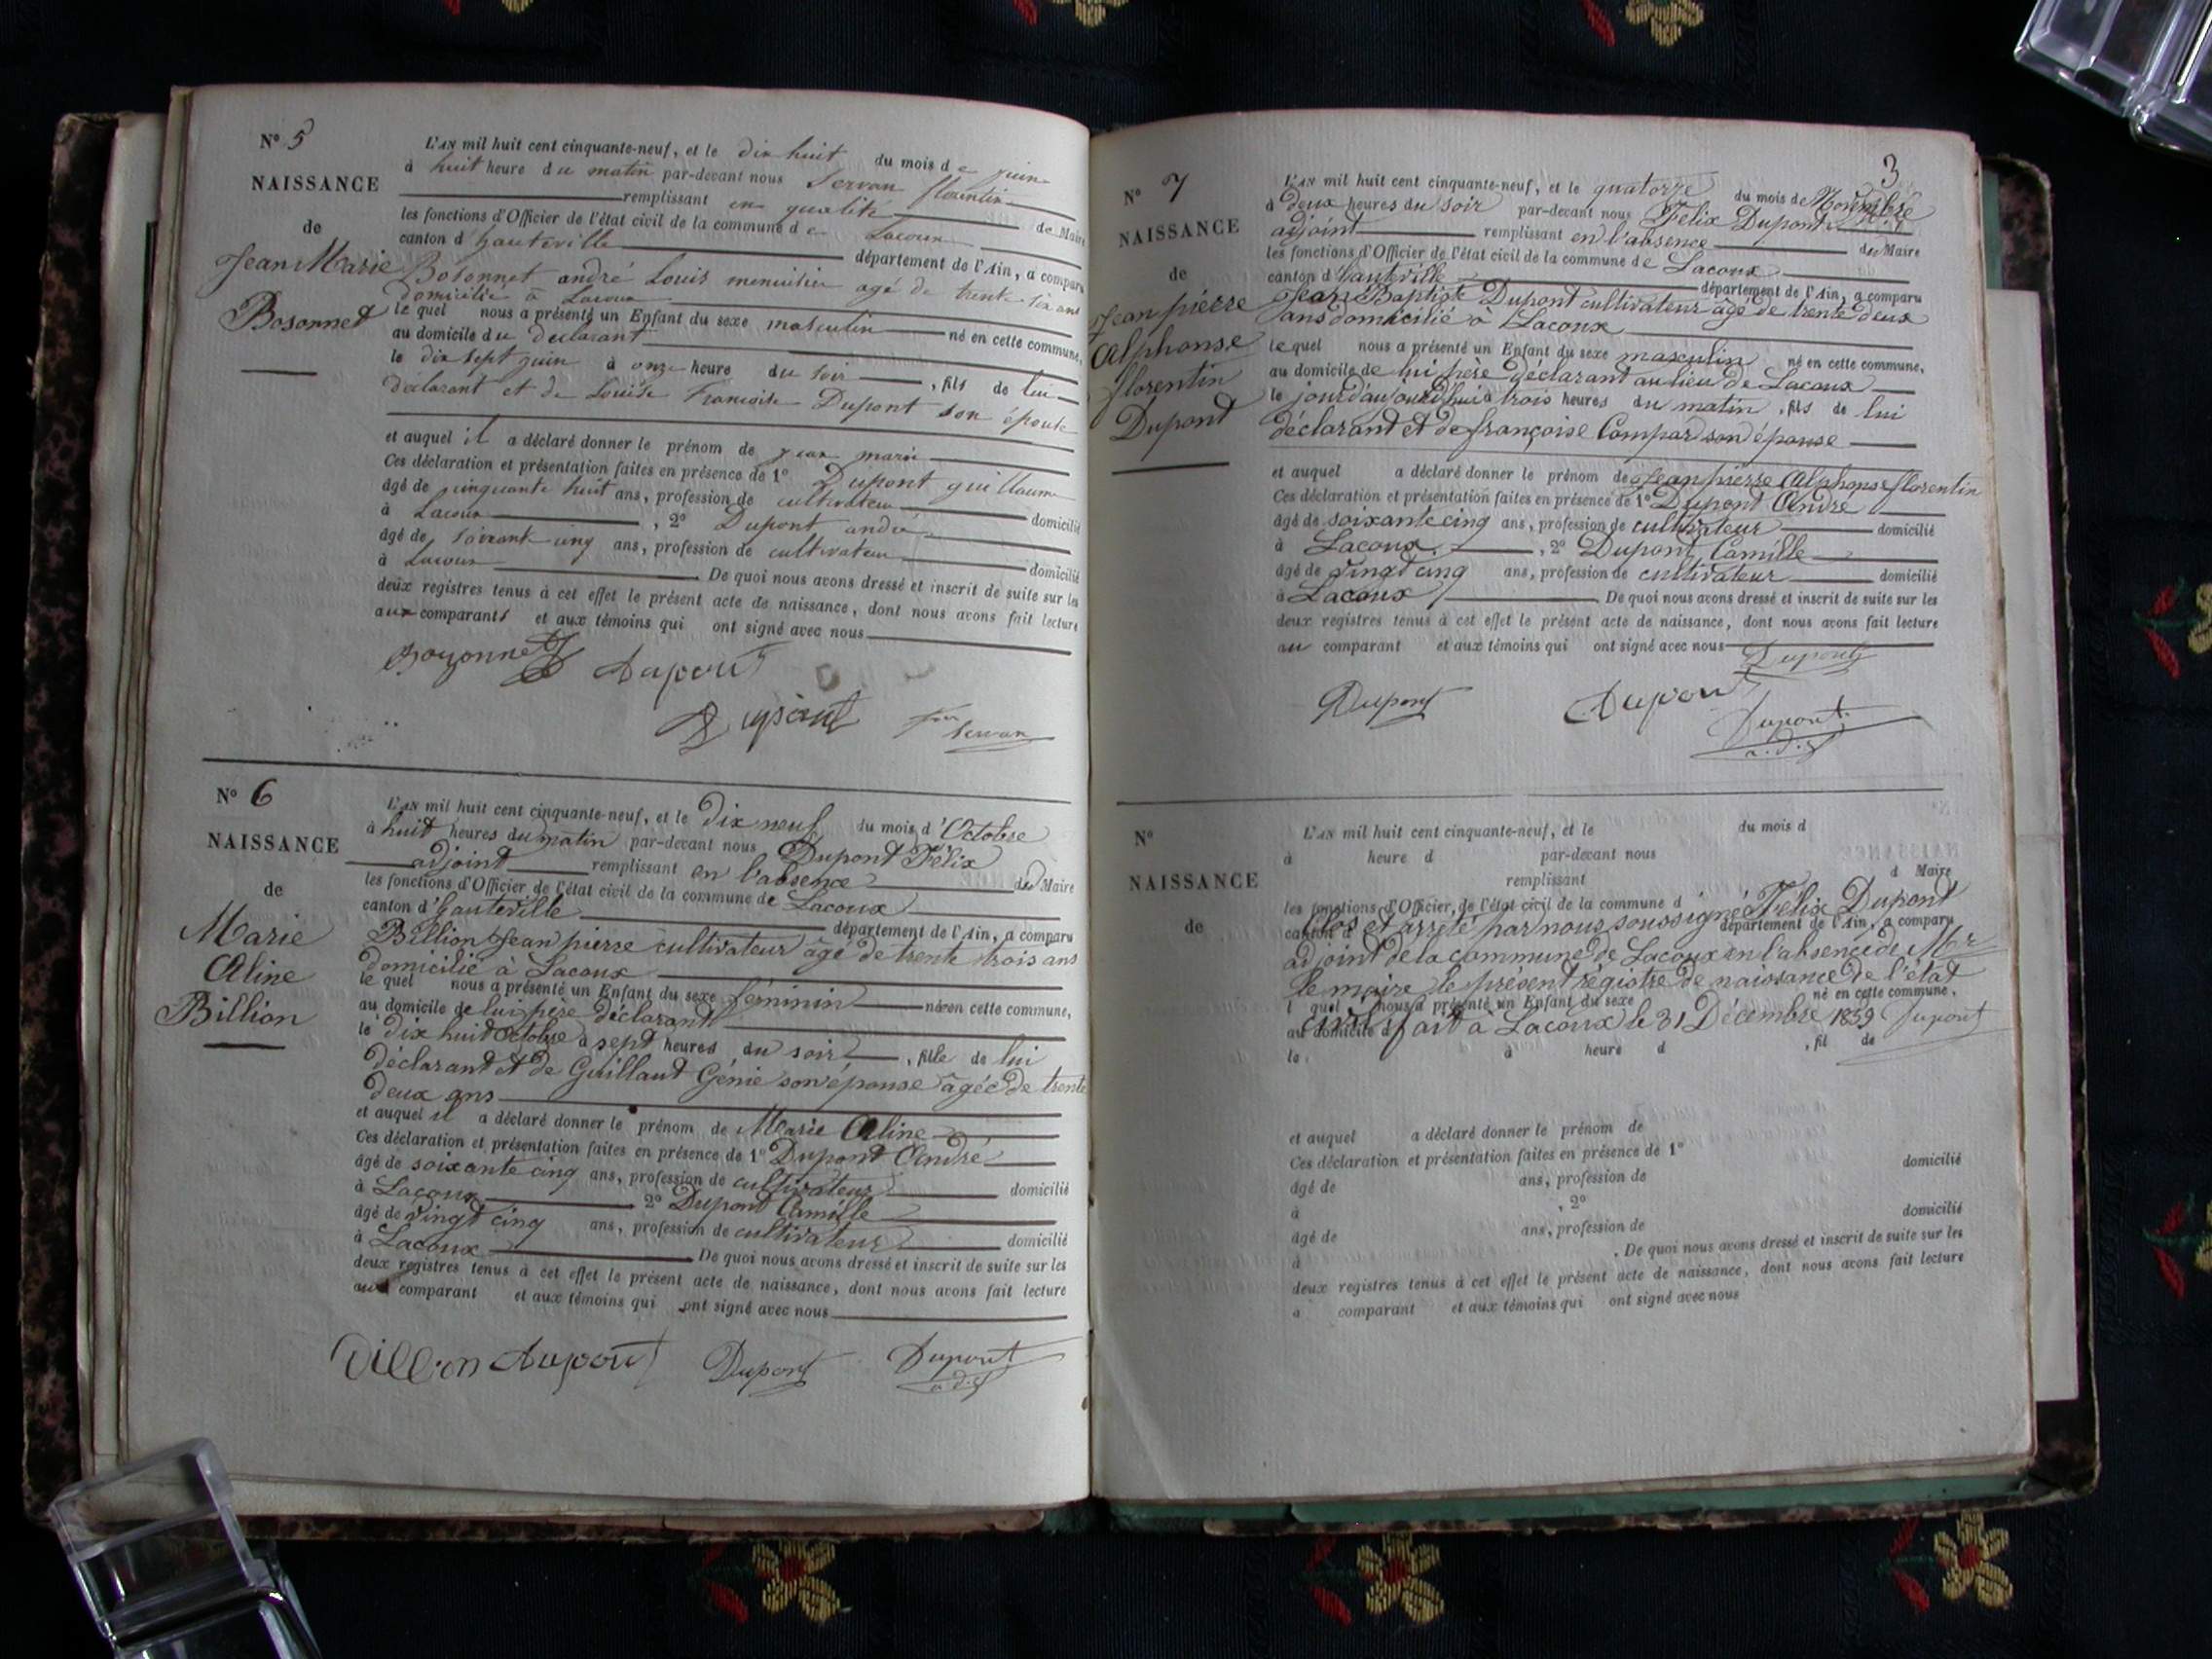 N° 5
NAISSANCE
de
Jean Marie
Bosonnet
L'AN mil huit cent cinquante-neuf, et le dix huit du mois de juin
à huit heure du matin par-devant nous Servan florentin
remplissant en qualité de Maire
les fonctions d'Officier de l'état civil de la commune de Lacoux
canton d'hauteville département de l'Ain, a comparu
Bosonnet andré Louis menuisier agé de trente six ans
domicilié à Lacoux
le quel nous a présenté un Enfant du sexe masculin né en cette commune,
au domicile du declarant
le dix sept juin à onze heure du soir, fils de lui
déclarant et de Louise Francoise Dupont son épouse
et auquel il a déclaré donner le prénom de jean marie
Ces déclaration et présentation faites en présence de 1° Dupont guillaume
âgé de cinquante huit ans, profession de cultivateur domicilié
à Lacoux, 2° Dupont andré
âgé de soixante cinq ans, profession de cultivateur domicilié
à Lacoux De quoi nous avons dressé et inscrit de suite sur les
deux registres tenus à cet effet le présent acte de naissance, dont nous avons fait lecture
aux comparants et aux témoins qui ont signé avec nous
Bozonnet Dupont
Dupont Servan
N° 6
NAISSANCE
de
Marie
Aline
Billion
L'AN mil huit cent cinquante-neuf, et le Dix neuf du mois d'Octobre
à huit heures du matin par-devant nous Dupont Félix
adjoint remplissant en l'absence du Maire
les fonctions d'Officier de l'état civil de la commune de Lacoux
canton d'hauteville département de l'Ain, a comparu
Billion Jean pierre cultivateur âgé de trente trois ans
domicilié à Lacoux
le quel nous a présenté un Enfant du sexe féminin née en cette commune,
au domicile de lui père déclarant
le dix huit Octobre à sept heures du soir, fille de lui
déclarant et de Guillaud Génie son épouse âgée de trente
deux ans
et auquel il a déclaré donner le prénom de Marie Aline
Ces déclaration et présentation faites en présence de 1° Dupont André
âgé de soixante cinq ans, profession de cultivateur domicilié
à Lacoux 2° Dupont Camille
âgé de vingt cinq ans, profession de cultivateur domicilié
à Lacoux De quoi nous avons dressé et inscrit de suite sur les
deux registres tenus à cet effet le présent acte de naissance, dont nous avons fait lecture
au comparant et aux témoins qui ont signé avec nous
Billion Dupont Dupont Dupont
adj
3
N° 7
NAISSANCE
de
Jean pierre
Alphonse
florentin
Dupont
L'AN mil huit cent cinquante-neuf, et le quatorze du mois de Novembre
à deux heures du soir par-devant nous Félix Dupont
adjoint remplissant en l'absence du Maire
les fonctions d'Officier de l'état civil de la commune de Lacoux
canton d'hauteville département de l'Ain, a comparu
Jean Baptiste Dupont cultivateur âgé de trente deux
ans domicilié à Lacoux
le quel nous a présenté un Enfant du sexe masculin né en cette commune,
au domicile de lui père déclarant au lieu de Lacoux
le jour d'aujourd'hui à trois heures du matin, fils de lui
déclarant et de françoise Compar son épouse
et auquel a déclaré donner le prénom de Jean pierre Alphonse florentin
Ces déclaration et présentation faites en présence de 1° Dupont André
âgé de soixante cinq ans, profession de cultivateur domicilié
à Lacoux, 2° Dupont Camille
âgé de vingt cinq ans, profession de cultivateur domicilié
à Lacoux De quoi nous avons dressé et inscrit de suite sur les
deux registres tenus à cet effet le présent acte de naissance, dont nous avons fait lecture
au comparant et aux témoins qui ont signé avec nous
Dupont
Dupont Dupont
Dupont
adj
N°
NAISSANCE
de
L'AN mil huit cent cinquante-neuf, et le du mois d
à heure d par-devant nous
remplissant d Maire
les fonctions d'Officier de l'état civil de la commune d
canton d département de l'Ain, a comparu
Clos et arrêté par nous soussigné Félix Dupont
adjoint de la commune de Lacoux en l'absence de Mr
le maire le présent régistre de naissance de l'état
l quel nous a présenté un Enfant du sexe né en cette commune,
civil fait à Lacoux le 31 Décembre 1859 Dupont
au domicile d
le à heure d, fil de
et auquel a déclaré donner le prénom de
Ces déclaration et présentation faites en présence de 1°
âgé de ans, profession de domicilié
à, 2°
âgé de ans, profession de domicilié
à. De quoi nous avons dressé et inscrit de suite sur les
deux registres tenus à cet effet le présent acte de naissance, dont nous avons fait lecture
a comparant et aux témoins qui ont signé avec nous